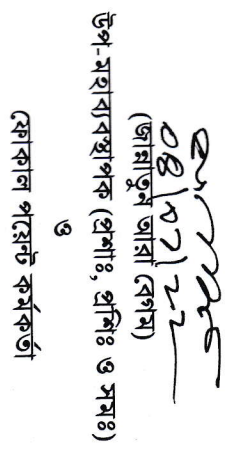 ০৪/০৭/২২
(জান্নাতুন আরা বেগম)
উপ-মহাব্যবস্থাপক (প্রশাঃ, প্রশিঃ ও সমঃ)
ও
ফোকাল পয়েন্ট কর্মকর্তা